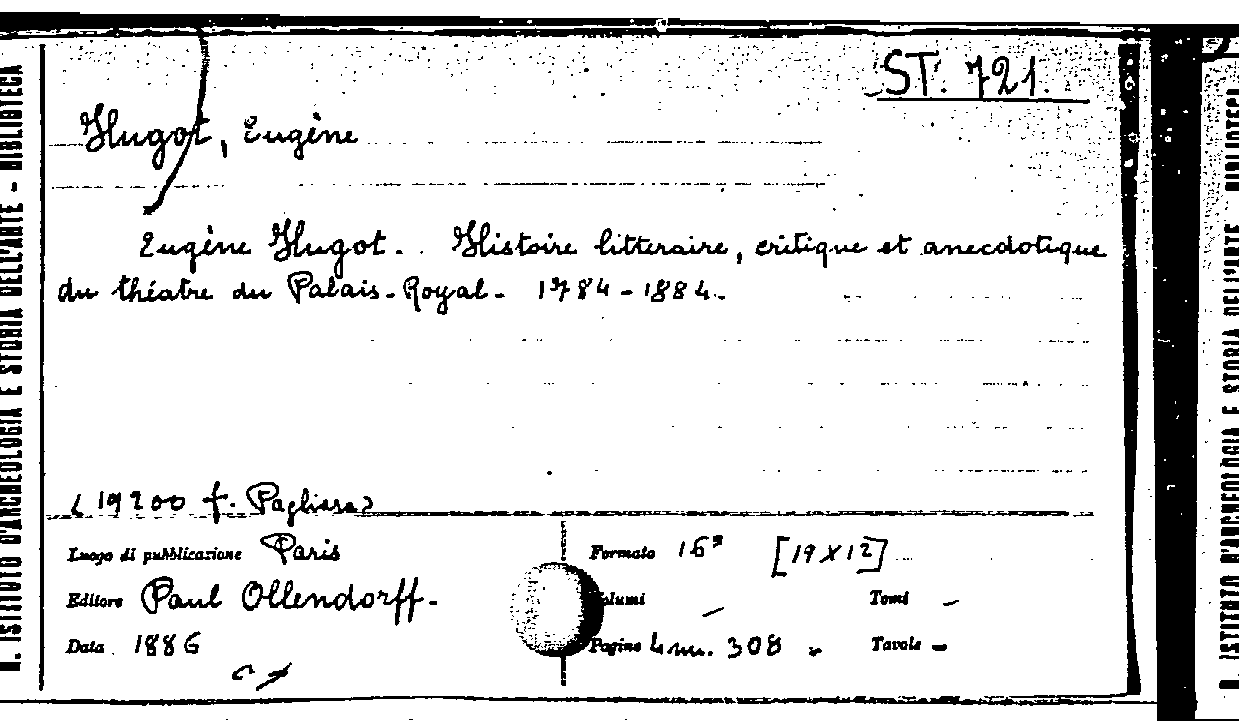 R. ISTITUTO D'ARCHEOLOGIA E STORIA DELL'ARTE - BIBLIOTECA
ST. 721.
Hugot, Eugène
Eugène Hugot. . Histoire litteraire, critique et anecdotique
du théatre du Palais-Royal - 1784-1884.
(19200 f. Pagliara)
Luogo di pubblicazione Paris
Formato 16° [19 X 12]
Editore Paul Ollendorff -
Volumi —
Tomi —
Data 1886
Pagine 4 nn. 308
Tavole —